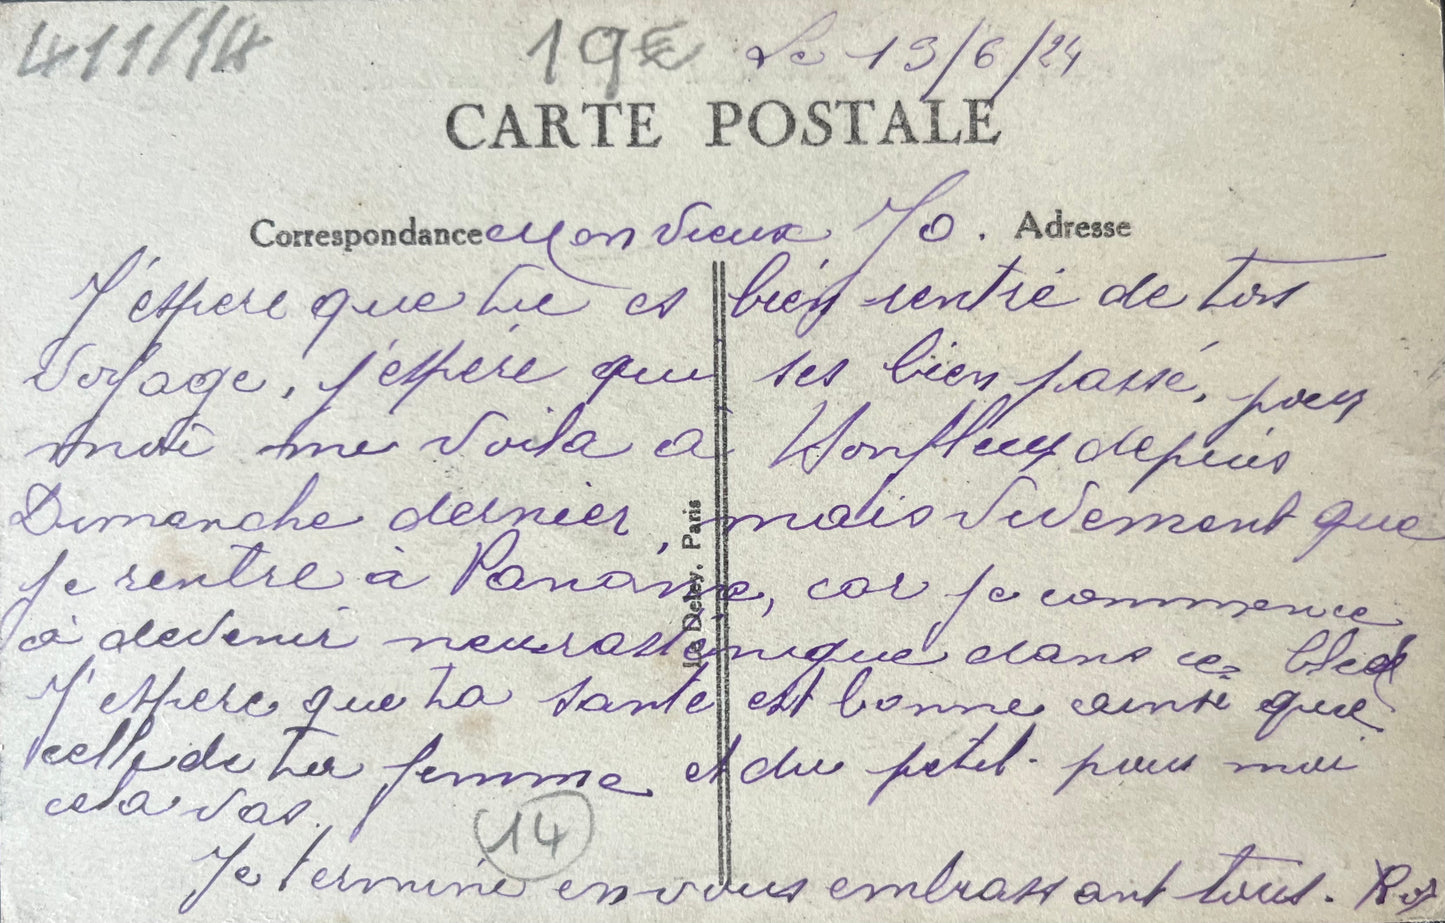 411/14
19€ Le 13/6/24
CARTE POSTALE
Correspondance Mon Vieux Jo. Adresse
J'espere que tu es bien rentré de ton
voyage, j'espére que ses bien passé, pour
moi me voila a Honfleur depuis
Dimanche dernier, mais vivement que
je rentre à Paname, car je commence
a devenir neurasténique dans ce bled
J'espere que ta santé est bonne ainsi que
celle de ta femme et du petit. pour moi
cela vas.
Je termine en vous embrassant tous.
14
Le Deley, Paris